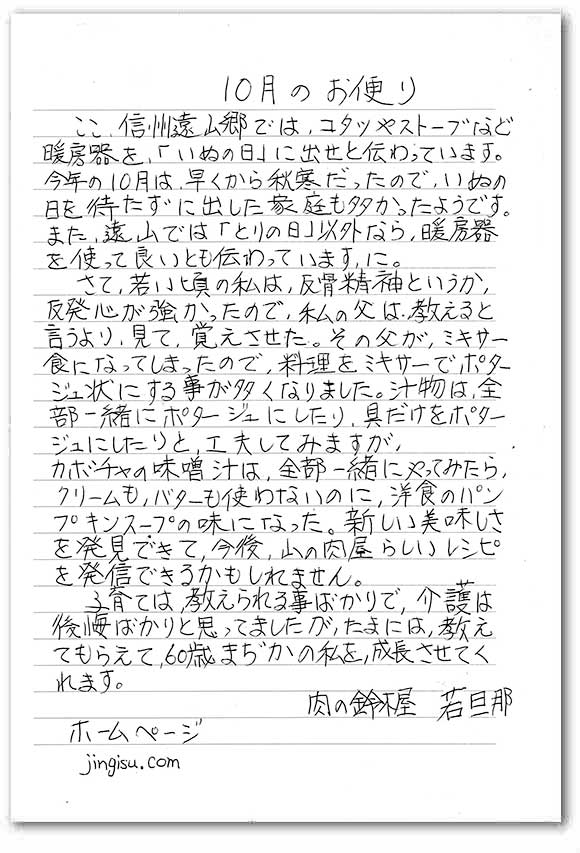 10月のお便り
ここ、信州遠山郷では、コタツやストーブなど
暖房器を、「いぬの日」に出せと伝わっています。
今年の10月は、早くから秋寒だったので、いぬの
日を待たずに出した家庭も多かったようです。
また、遠山では「とりの日」以外なら、暖房器
を使って良いとも伝わっています、に。
さて、若い頃の私は、反骨精神というか、
反発心が強かったので、私の父は、教えると
言うより、見て、覚えさせた。その父が、ミキサー
食になってしまったので、料理をミキサーでポター
ジュ状にする事が多くなりました。汁物は、全
部一緒にポタージュにしたり、具だけをポター
ジュにしたりと、工夫してみますが、
カボチャの味噌汁は、全部一緒にやってみたら、
クリームも、バターも使わないのに、洋食のパン
プキンスープの味になった。新しい美味しさ
を発見できて、今後、山の肉屋らしいレシピ
を発信できるかもしれません。
子育ては、教えられる事ばかりで、介護は
後悔ばかりと思ってましたが、たまには、教え
てもらえて、60歳まぢかの私を、成長させてく
れます。
肉の鈴木屋 若旦那
ホームページ
jingisu.com